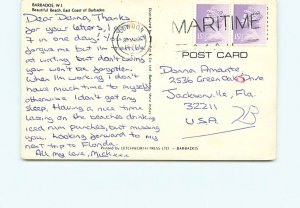 BARBADOS, W.I.
Beautiful Beach, East Coast of Barbados
Dear Donna, Thanks
for your letters, I
7 in one day! You must
forgive me but I'm terrible
at writing but don't think
you won't be forgotten.
When I'm working I don't
have much time to myself
otherwise I don't get any
sleep. Having a nice time
lazing on the beaches drinking
iced rum punches, but missing
you. Looking forward to my
next trip to Florida.
All my love, Mick xxx
MARITIME
POST CARD
Donna Amante
2536 Green
Drive
Jacksonville, Fla.
32211
U.S.A.
Printed by LETCHWORTH PRESS LTD - BARBADOS